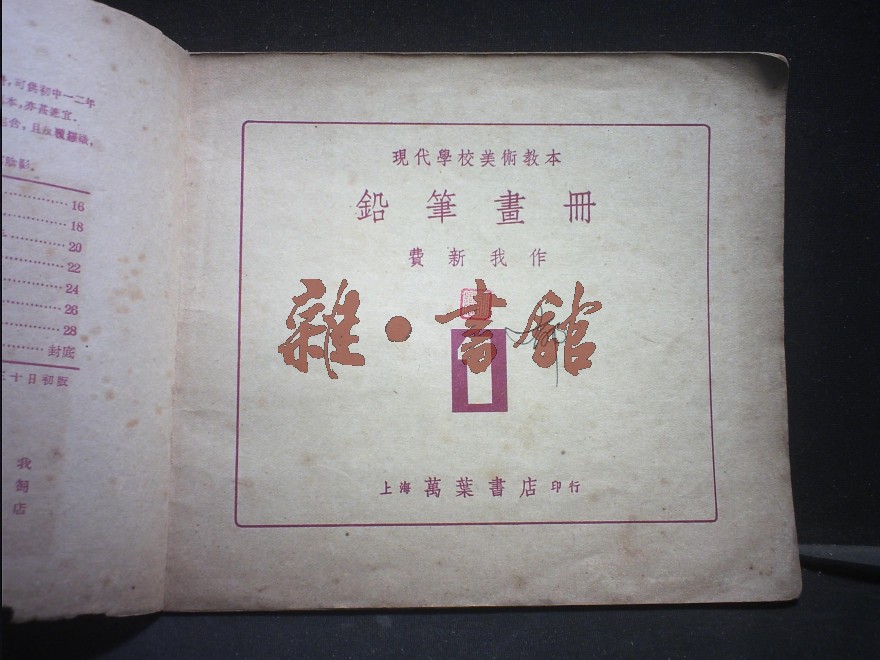 可供初中一二年
本，亦甚適宜．
陰影．
16
18
20
22
24
26
28
封底
十日初版
我
店
現代學校美術教本
鉛筆畫冊
費新我作
雜·書館
上海 萬葉書店 印行